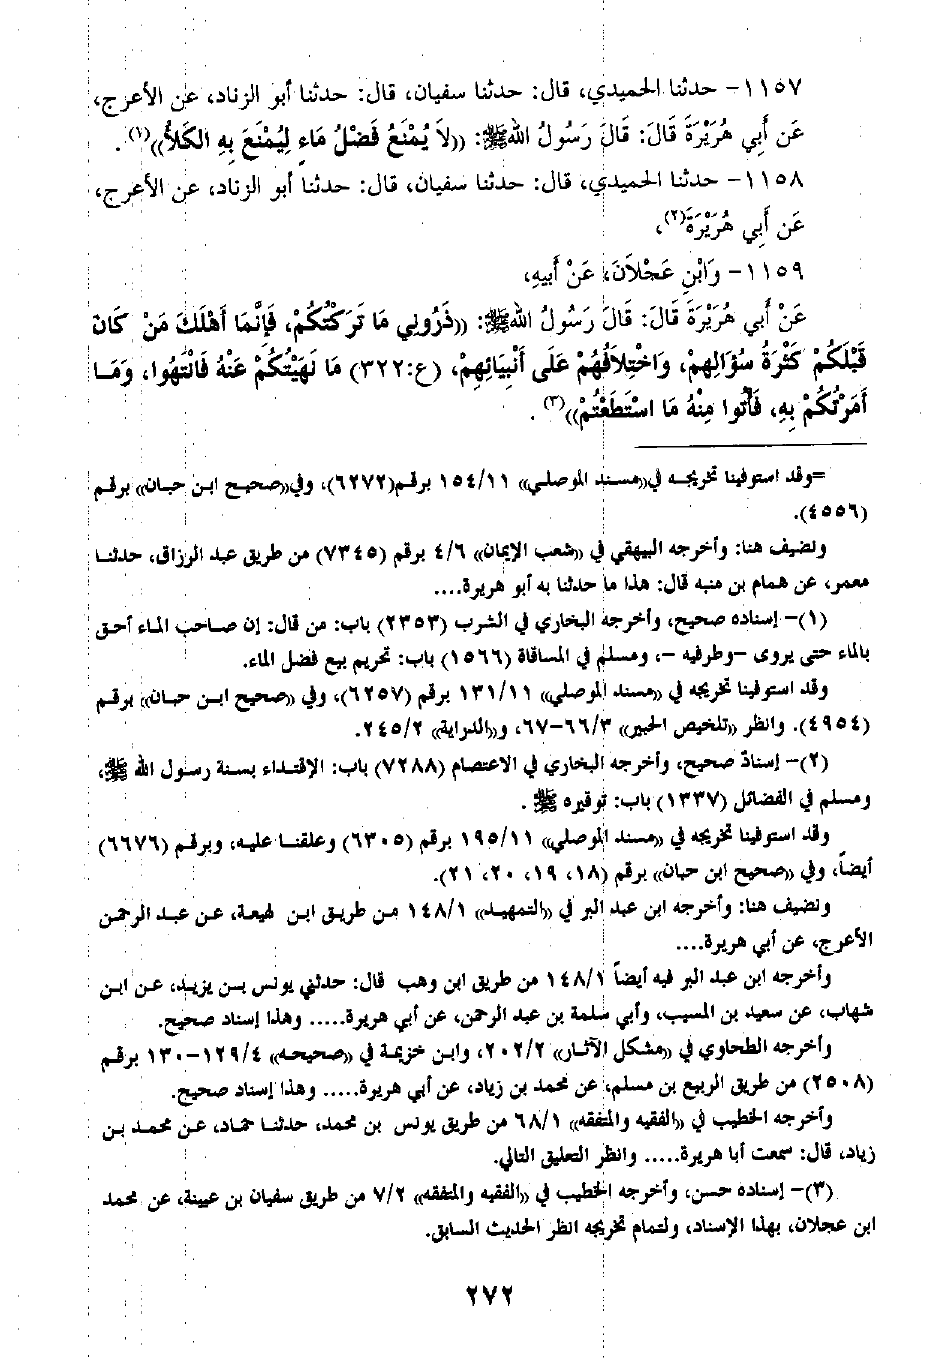 ١١٥٧- حدثنا الحميدي، قال: حدثنا سفيان، قال: حدثنا أبو الزناد، عن الأعرج،
عَن أَبِي هُرَيْرَةَ قَالَ: قَالَ رَسُولُ اللهِ ﷺ: ((لاَ يُمْنَعُ فَضْلُ مَاءٍ لِيُمْنَعَ بِهِ الكَلأُ))(١).
١١٥٨- حدثنا الحميدي، قال: حدثنا سفيان، قال: حدثنا أبو الزناد، عن الأعرج،
عَن أَبِي هُرَيْرَةَ(٢)،
١١٥٩- وَابْنِ عَجْلاَنَ، عَنْ أَبِيهِ،
عَنْ أَبِي هُرَيْرَةَ قَالَ: قَالَ رَسُولُ اللهِ ﷺ: ((ذَرُونِي مَا تَرَكْتُكُمْ، فَإِنَّمَا أَهْلَكَ مَنْ كَانَ
قَبْلَكُمْ كَثْرَةُ سُؤَالِهِمْ، وَاخْتِلاَفُهُمْ عَلَى أَنْبِيَائِهِمْ، (ع:٣٢٢) مَا نَهَيْتُكُمْ عَنْهُ فَانْتَهُوا، وَمَا
أَمَرْتُكُمْ بِهِ، فَأْتُوا مِنْهُ مَا اسْتَطَعْتُمْ))(٣).
=وقد استوفينا تخريجه في((مسند الموصلي)) ١٥٤/١١ برقم(٦٢٧٢)، وفي((صحيح ابن حبان)) برقم
(٤٥٥٦).
ونضيف هنا: وأخرجه البيهقي في ((شعب الإيمان)) ٤/٦ برقم (٧٣٤٥) من طريق عبد الرزاق، حدثنا
معمر، عن همام بن منبه قال: هذا ما حدثنا به أبو هريرة....
(١)- إسناده صحيح، وأخرجه البخاري في الشرب (٢٣٥٣) باب: من قال: إن صاحب الماء أحق
بالماء حتى يروى -وطرفيه -، ومسلم في المساقاة (١٥٦٦) باب: تحريم بيع فضل الماء.
وقد استوفينا تخريجه في ((مسند الموصلي)) ١٣١/١١ برقم (٦٢٥٧)، وفي ((صحيح ابن حبان)) برقم
(٤٩٥٤). وانظر ((تلخيص الحبير)) ٦٦/٣-٦٧، و((الدراية)) ٢٤٥/٢.
(٢)- إسنادٌ صحيح، وأخرجه البخاري في الاعتصام (٧٢٨٨) باب: الإقتداء بسنة رسول الله ﷺ،
ومسلم في الفضائل (١٣٣٧) باب: توقيره ﷺ .
وقد استوفينا تخريجه في ((مسند الموصلي)) ١٩٥/١١ برقم (٦٣٠٥) وعلقنا عليه، وبرقم (٦٦٧٦)
أيضاً، وفي ((صحيح ابن حبان)) برقم (١٨، ١٩، ٢٠، ٢١).
ونضيف هنا: وأخرجه ابن عبد البر في ((التمهيد)) ١٤٨/١ من طريق ابن لهيعة، عن عبد الرحمن
الأعرج، عن أبي هريرة....
وأخرجه ابن عبد البر فيه أيضاً ١٤٨/١ من طريق ابن وهب قال: حدثني يونس بن يزيد، عن ابن
شهاب، عن سعيد بن المسيب، وأبي سلمة بن عبد الرحمن، عن أبي هريرة..... وهذا إسناد صحيح.
وأخرجه الطحاوي في ((مشكل الآثار)) ٢٠٢/٢، وابن خزيمة في ((صحيحه)) ١٢٩/٤-١٣٠ برقم
(٢٥٠٨) من طريق الربيع بن مسلم، عن محمد بن زياد، عن أبي هريرة..... وهذا إسناد صحيح.
وأخرجه الخطيب في ((الفقيه والمتفقه)) ٦٨/١ من طريق يونس بن محمد، حدثنا حماد، عن محمد بن
زياد، قال: سمعت أبا هريرة..... وانظر التعليق التالي.
(٣)- إسناده حسن، وأخرجه الخطيب في ((الفقيه والمتفقه)) ٧/٢ من طريق سفيان بن عيينة، عن محمد
ابن عجلان، بهذا الإسناد، ولتمام تخريجه انظر الحديث السابق.
٢٧٢